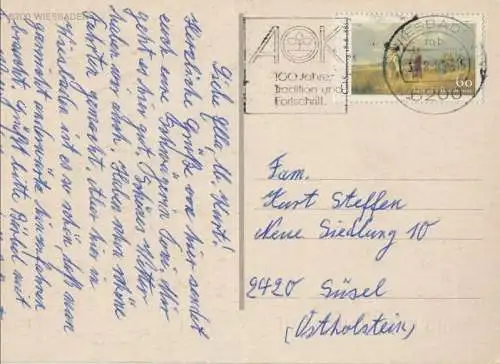 6200 WIESBADEN
Liebe Ella u. Kurt!
Herzliche Grüße von hier sendet
euch eure Schwägerin Toni, Mir
geht es hier gut, Schönes Wetter
haben wir auch. Haben schon schöne
Fahrten gemacht. Aber hier in
Wiesbaden ist es so schön daß man
garnicht anderwärts hinzufahren
braucht. Grüßt bitte Bärbel mit
WIESBADEN
mb
6200
AOK
100 Jahre:
Tradition und
Fortschritt.
Carl Spitzweg 1808-1885
60
Fam.
Kurt Steffen
Neue Siedlung 10
2420 Süsel
(Ostholstein)